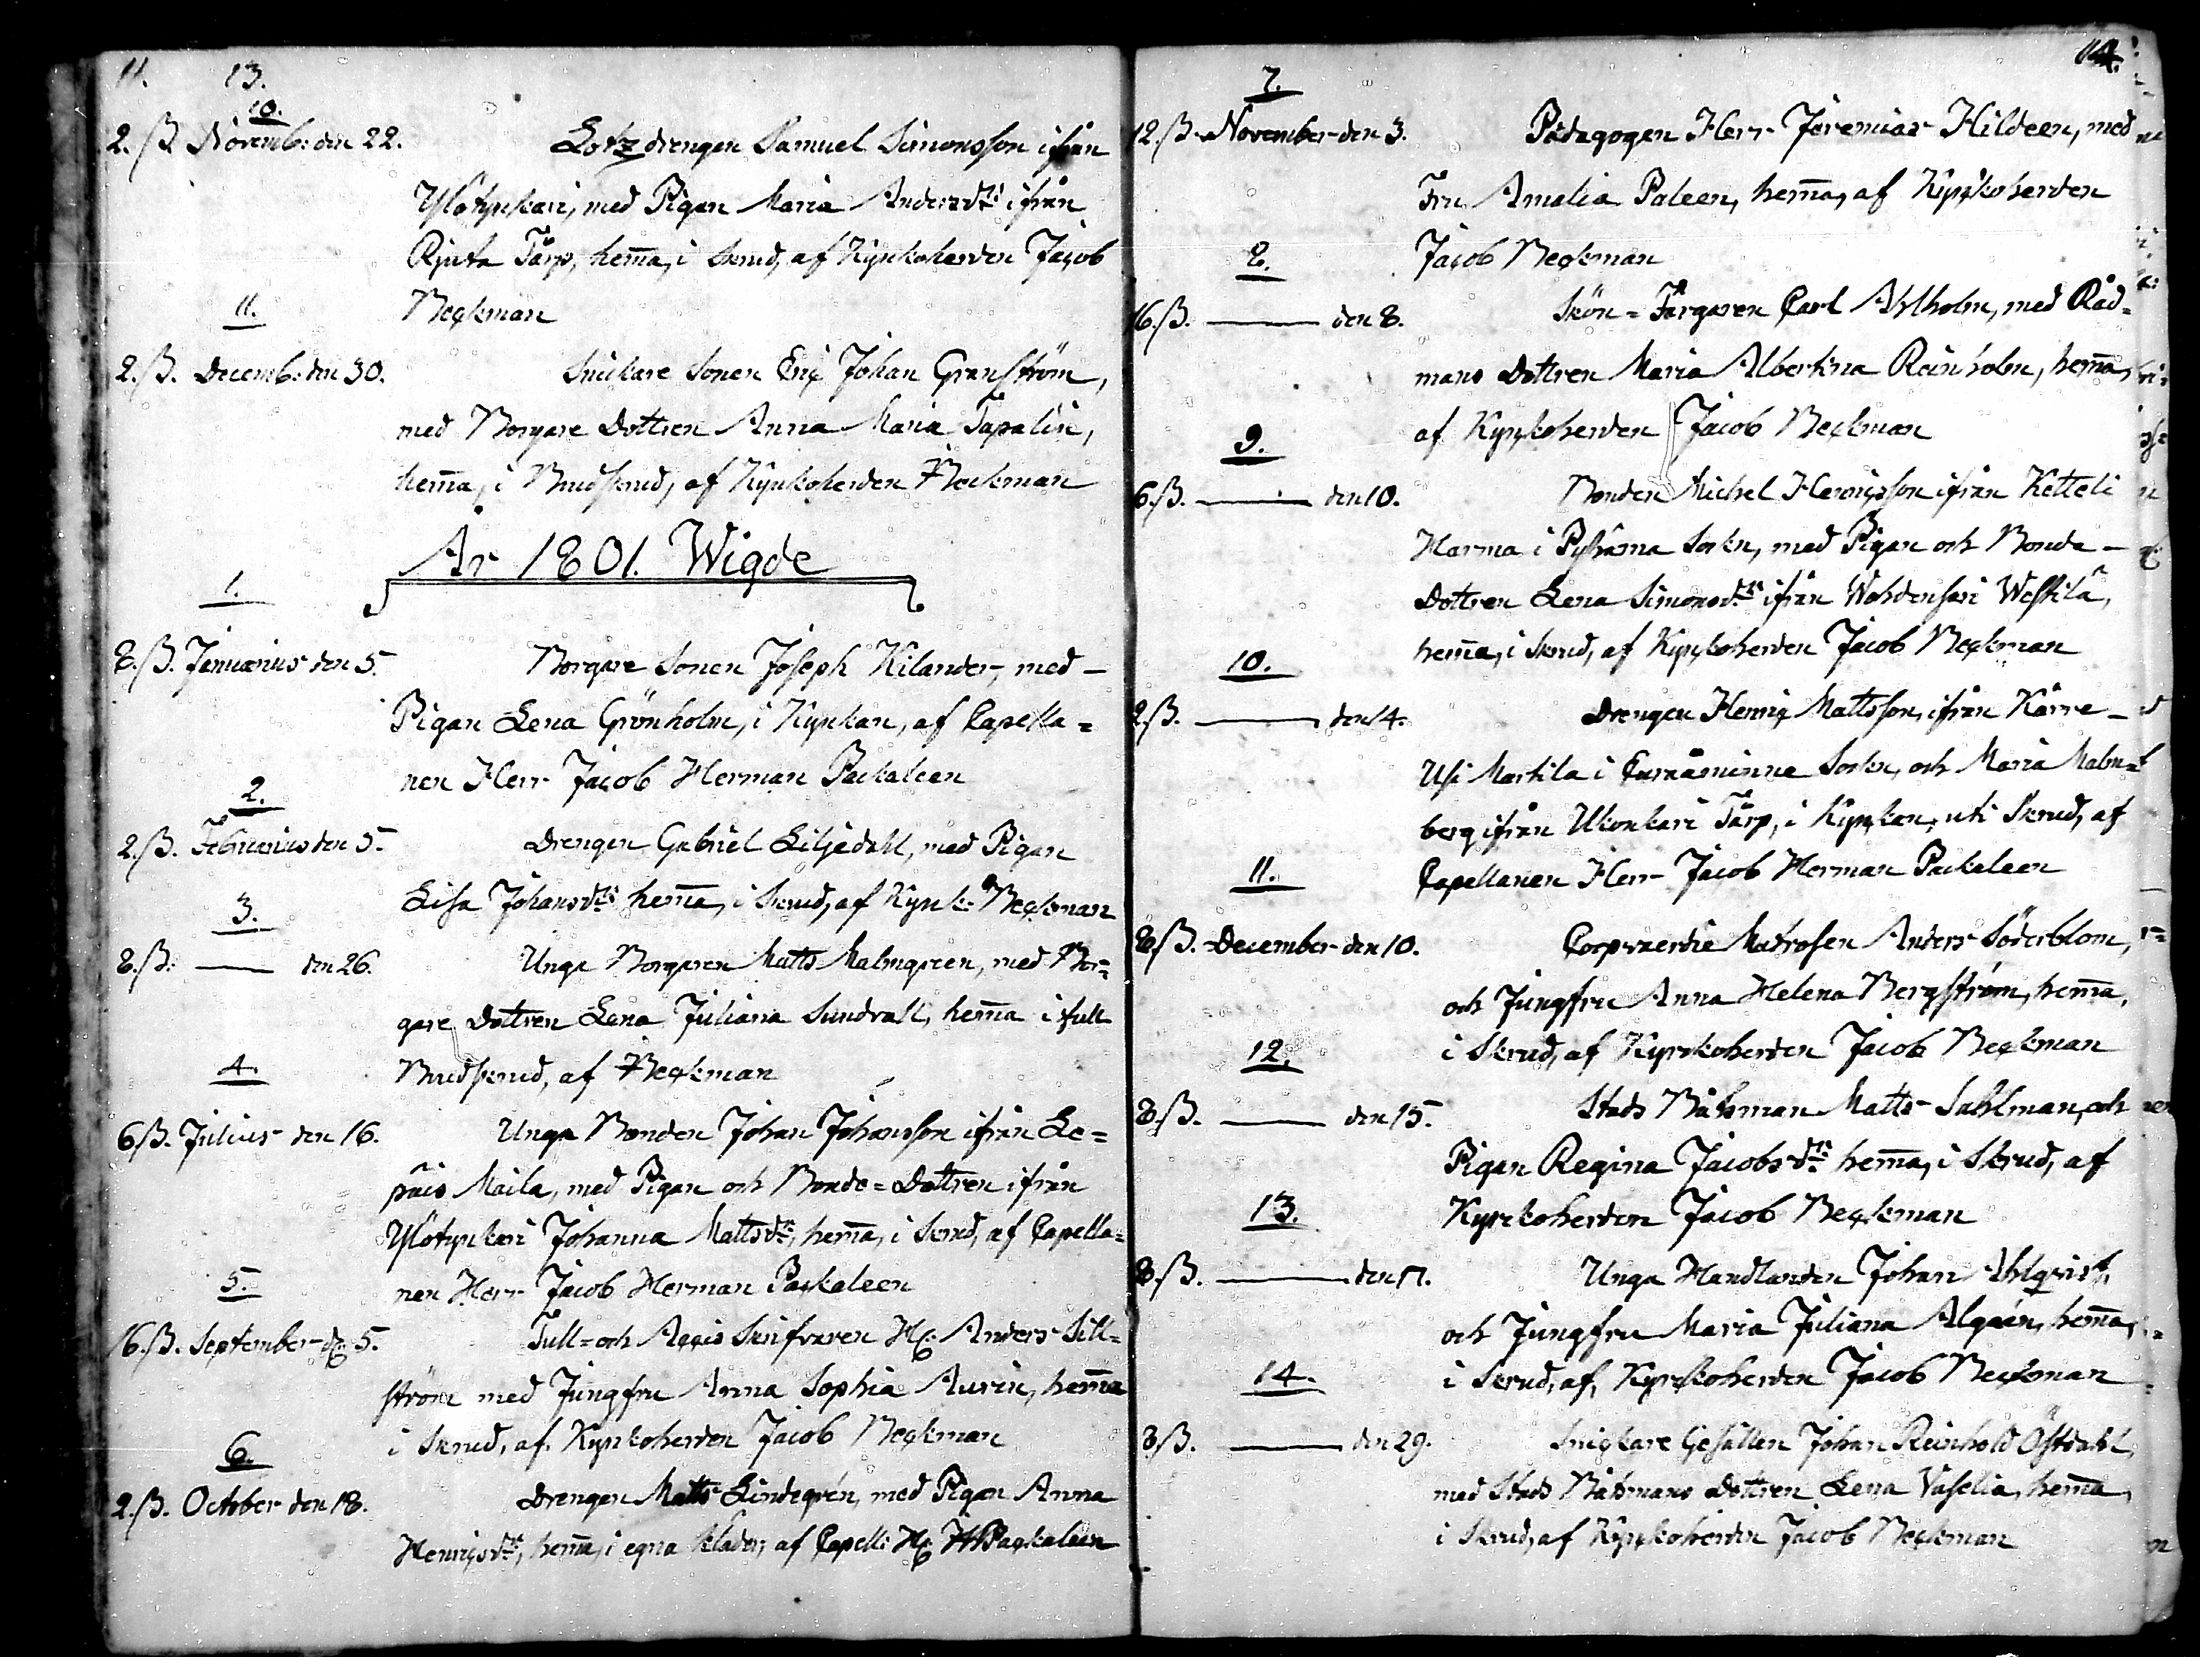 11. 13.
10.
2. ß. Novemb: den 22. Lotzdrengen Samuel Simonsson ifrån
Ylötynkari, med Pigan Maria Andersdtr ifrån
Torp, hema, i skrud, af Kyrkoherden Jacob
Beckman
11.
2. ß. Decemb: den 30. Snickare Sonen Eric Johan Granström,
med Borgare Dottren Anna Maria Tapalin,
hema, i Brudskrud, af Kyrkoherden Beckman
År 1801. Wigde
1.
8. ß. Januarius den 5. Borgare Sonen Joseph Kilander, med
Pigan Lena Grönholm, i Kyrkan, af Capella=
nen Herr Jacob Herman Packaleen
2.
2. ß. Februarius den 5. Drengen Gabriel Liljedahl, med Pigan
Lisa Johansdtr hema, i skrud, af Kyrk: Beckman
3.
8. ß. —— den 26. Unga Borgaren Matts Malmgreen, med Bor=
gare Dottren Lena Juliana Sundvall, hema i full
Brudskrud, af Beckman
4.
6 ß. Julius den 16. Unga Bonden Johan Johansson ifrån Le=
päis Maila, med Pigan och Bonde=Dottren ifrån
Ylötynkari Johanna Mattsdtr, hema, i skrud, af Capella=
nen Herr Jacob Herman Packaleen
5.
16. ß. September d: 5. Tull=och Accis Skrifvaren H: Anders Sill=
ström med Jungfru Anna Sophia Aurin, hema
i Skrud, af Kyrkoherden Jacob Beckman
6.
2. ß. October den 18. Drengen Matts Lindegrén, med Pigan Anna
Henricsdtr, hema, i egna kläder, af Capell: H: JHPackaleen
114.
7.
12. ß. November den 3. Pädagogen Herr Jeremias Hildeen, med
Fru Amalia Paleen, hema, af Kyrkoherden
Jacob Beckman
8.
16. ß. —— den 8. Skön=Färgaren Carl Ahlholm, med Råd=
mans Dottren Maria Albertina Reinholm, hema,
af Kyrkoherden Jacob Beckman
9.
6. ß. —— den 10. Bonden Michel Henricsson ifrån Ketteli
Harma i Pyhäma Sokn, med Pigan och Bonde-
Dottren Lena Simonsdtr ifrån Wohdensari Westilä,
hema, i skrud, af Kyrkoherden Jacob Beckman
10.
2 ß. —— den 14. Drengen Henric Mattsson, ifrån Kärre-
Usi Martila i Euraåminne Sokn, och Maria Malm=
berg ifrån Ukonkari Torp, i Kyrkan, uti Skrud, af
Capellanen Herr Jacob Herman Packaleen
11.
8 ß. December den 10. Matrosen Anders Söderblom,
och Jungfru Anna Helena Bergström, hema,
i Skrud, af Kyrkoherden Jacob Beckman
12.
8. ß. —— den 15. Stads Båtsman Matts Sahlman, och
Pigan Regina Jacobsdtr hema, i Skrud, af
Kyrkoherden Jacob Beckman
13.
8. ß. —— den 17. Unga Handlanden Johan Ahlqvist,
och Jungfru Maria Juliana Algreén, hema,
i Skrud, af, Kyrkoherden Jacob Beckman
14.
8 ß. —— den 29. Snickare Gesällen Johan Reinhold Östdahl,
med Stads Båtsmans Dottren Lena Vaselia, hema,
i Skrud, af Kyrkoherden Jacob Beckman